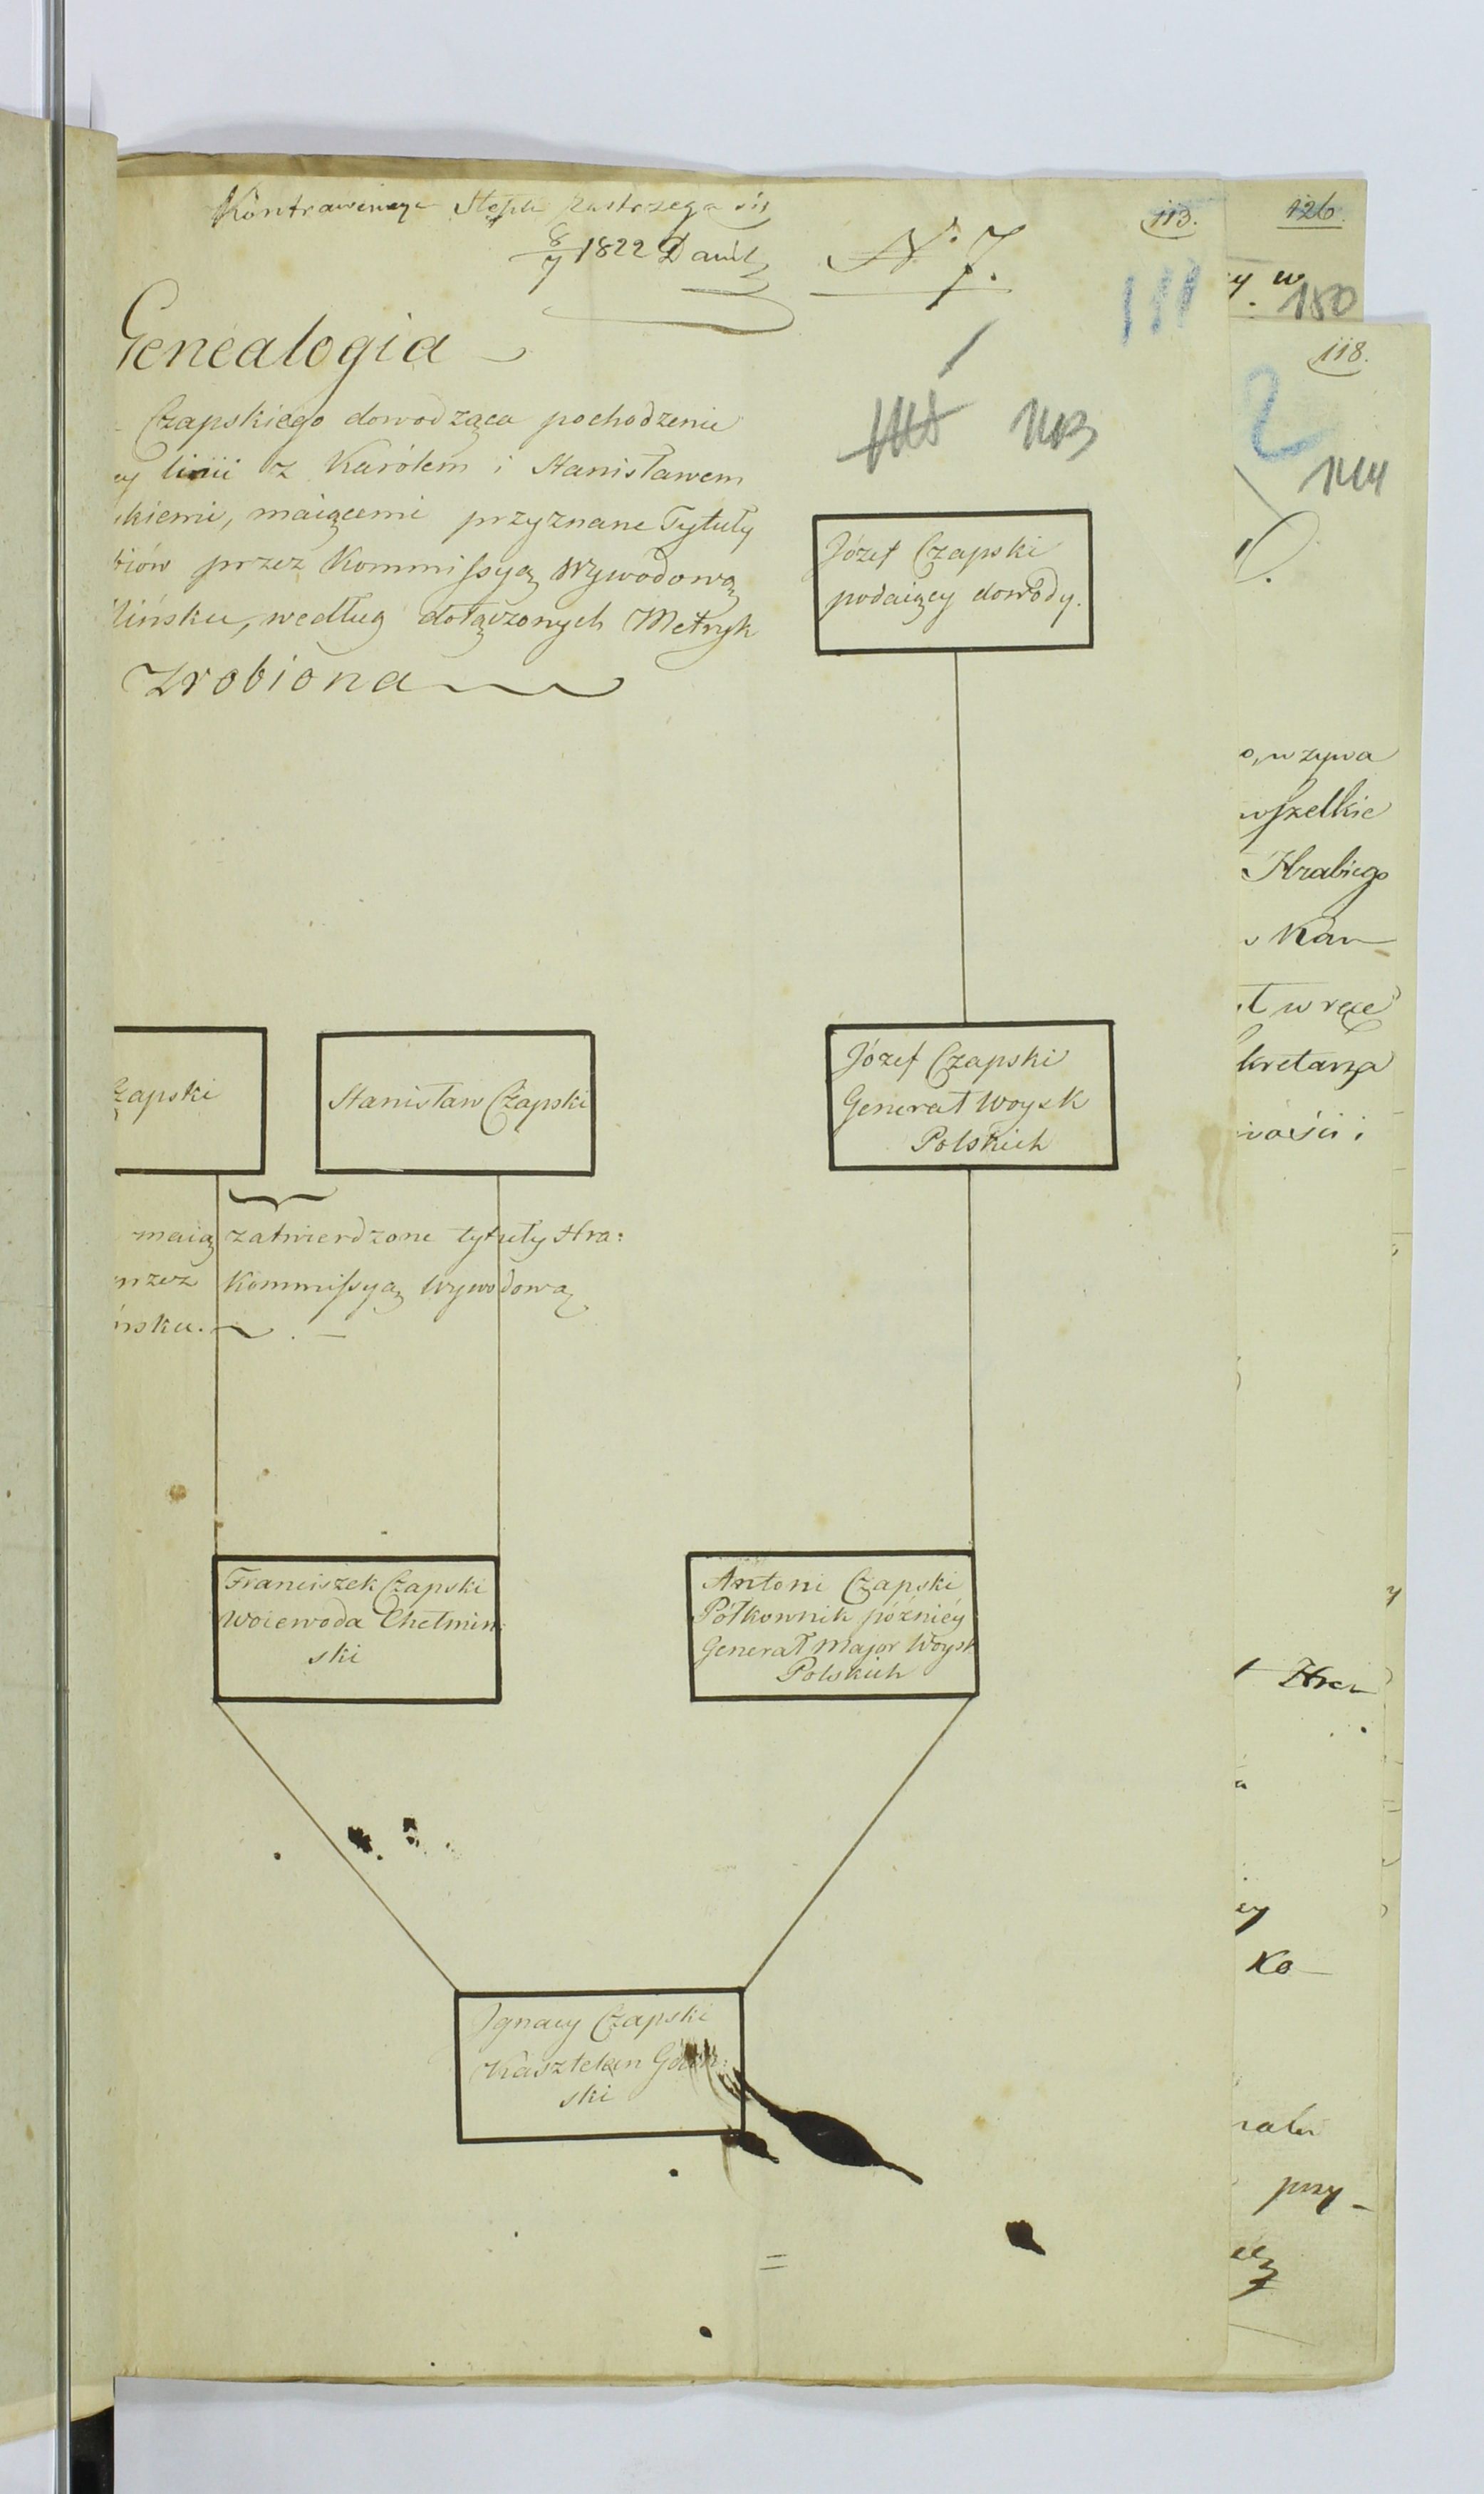 Kontrawencya Stęplu zastrzega się
8/7 1822 Daniel
No. 7.
113.
111
1113
Genealogia
Czapskiego dowodząca pochodzenie
ey linii z Karólem i Stanisławem
skiemi, maiącemi przyznane Tytuły
biów przez Kommissyą Wywodową
Mińsku, według dołączonych Metryk
Zrobiona
Józef Czapski
podaiący dowody.
Czapski
Stanisław Czapski
Józef Czapski
Generał Woysk
Polskich
maią zatwierdzone tytuły Hra:
przez Kommissyą Wywodową
ińsku.
Franciszek Czapski
Woiewoda Chełmiń:
ski
Antoni Czapski
Półkownik późniéy
Generał Major Woysk
Polskich
Ignacy Czapski
Kasztelan Gdań:
ski
126.
y w
180
118.
2
1114
o, wzywa
wszelkie
Hrabiego
Kan
t w ręce
kretarza
wości i
Hra
ey
Ko
przy